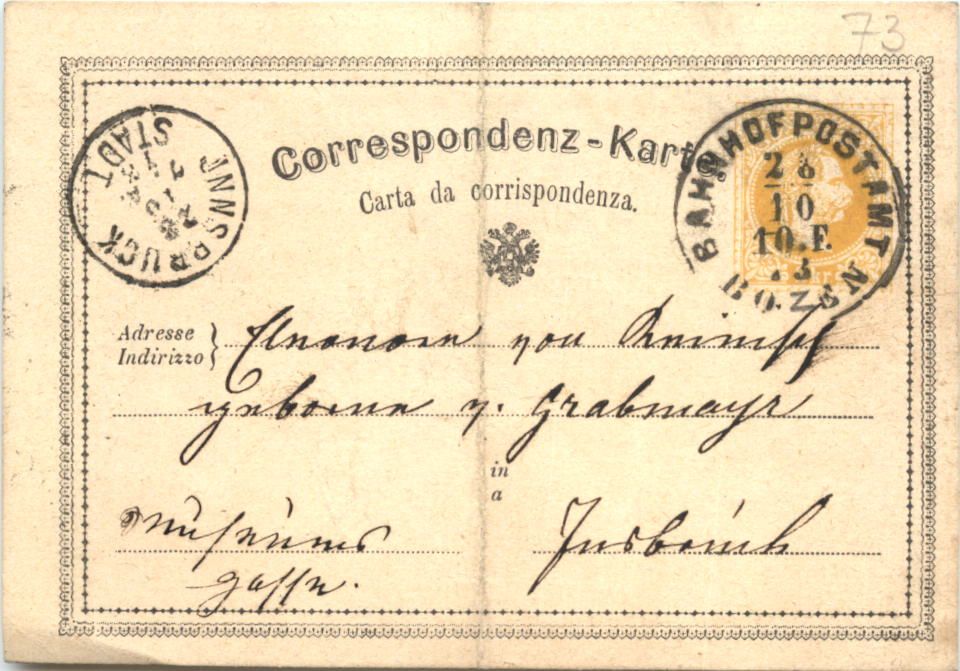 73
Correspondenz-Karte
Carta da corrispondenza.
BAHNHOFPOSTAMT
28
10
10.F.
73
BOZEN
INNSBRUCK
STADT
Adresse
Indirizzo
Eleonore von Reinisch
geborene v. Grabmayr
in
a
Museums
gasse.
Insbruck